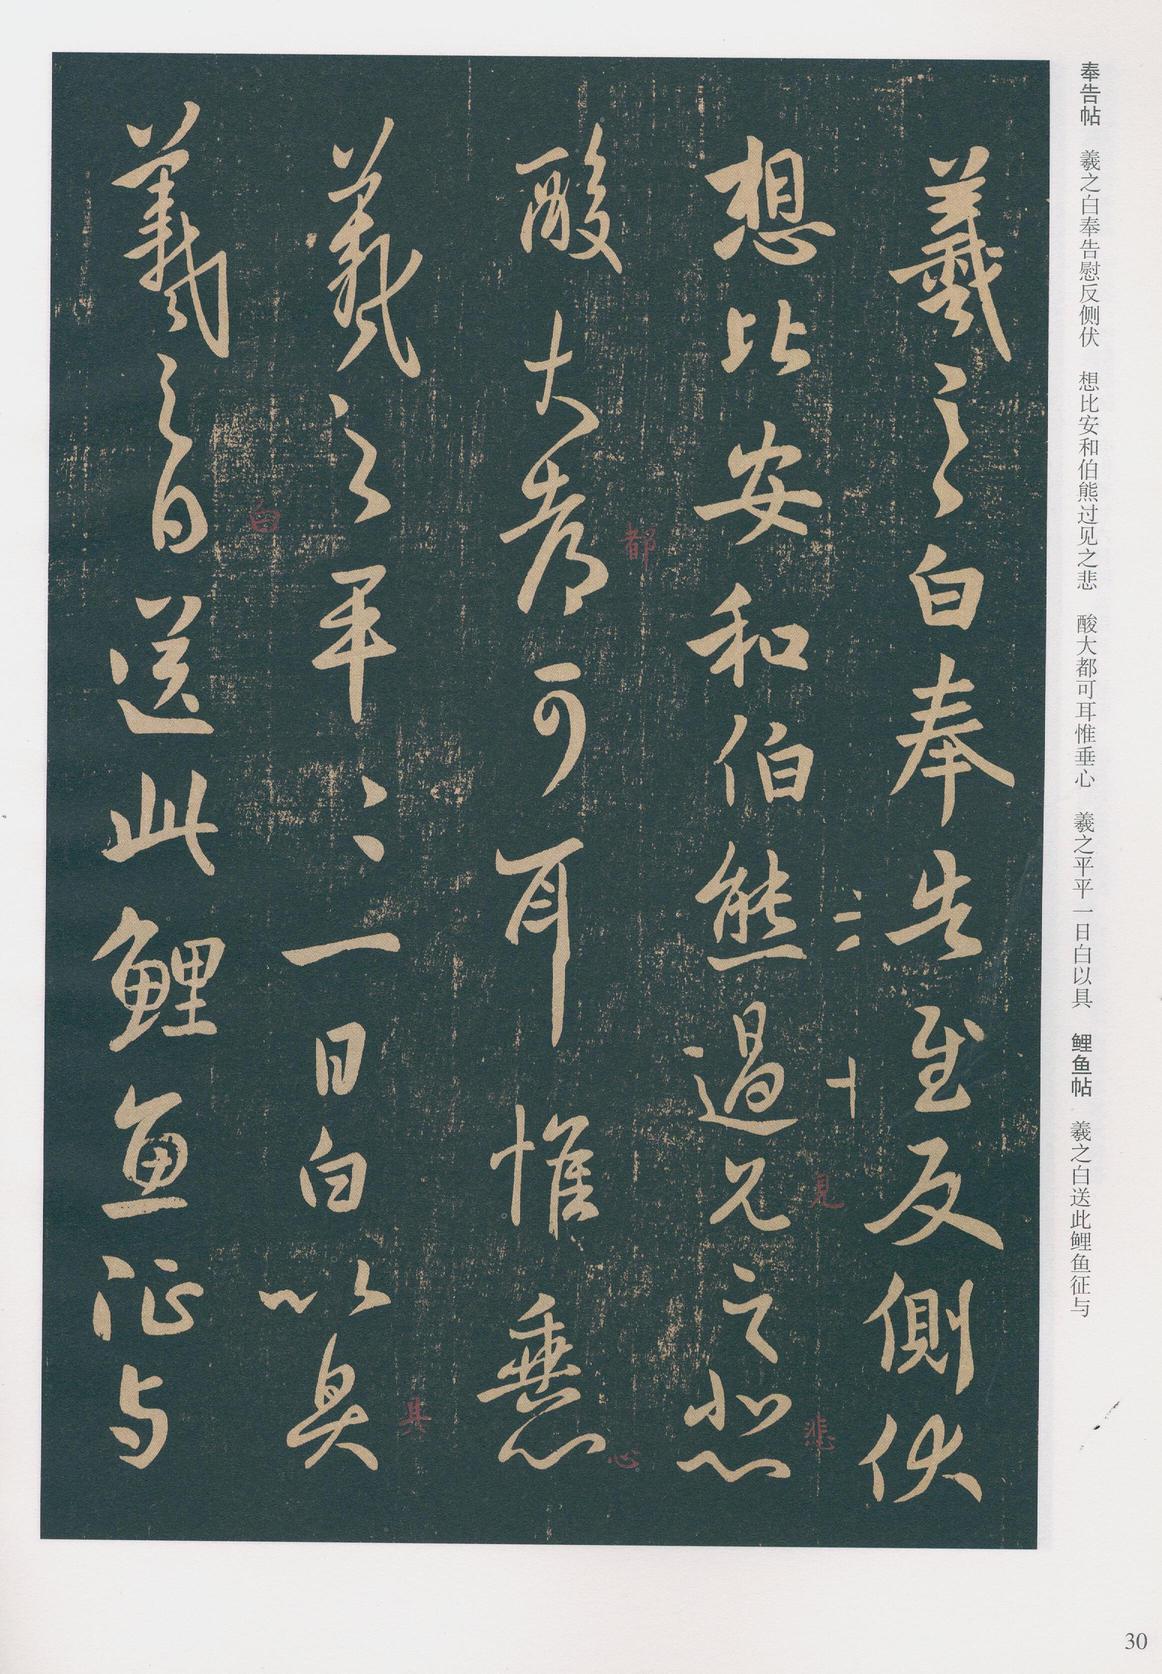 奉告帖 羲之白奉告慰反侧伏 想比安和伯熊过见之悲 酸大都可耳惟垂心 羲之平平一日白以具 鲤鱼帖 羲之白送此鲤鱼征与
羲之白奉告慰反側伏
二十
見
悲
想比安和伯熊過見之悲
都
心
酸大都可耳惟垂心
具
羲之平〻一日白以具
白
羲之白送此鯉魚征与
30